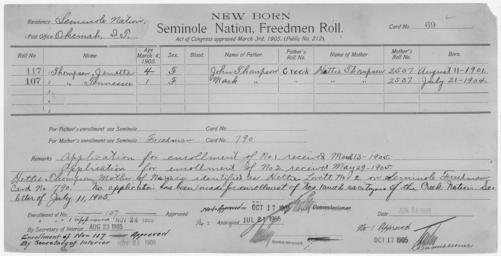 NEW BORN
Residence Seminole Nation.
Seminole Nation, Freedmen Roll.
Card No. 69
Post Office Okemah I.T.
Act of Congress approved March 3rd, 1905. (Public No. 212).
Roll No. Name Age March 4, 1905. Sex. Blood. Name of Father. Father's Roll No. Name of Mother. Mother's Roll No. Born.
117 Thompson, Jenetta 4 F John Thompson Creek Hettie Thompson 2507 August 11-1901.
107 " Tennessee 1 F Mack " " " 2507 July 21-1904.
For Father's enrollment see Seminole Card No.
For Mother's enrollment see Seminole Freedman Card No. 790.
Remarks Application for enrollment of No. 1 received March 13-1905.
Application for enrollment of No. 2 received May 29-1905.
Hettie Thompson Mother of Nos. 1 and 2 identified as Hettie No. 2 on Seminole Freedman
Card No. 790. No application has been made for enrollment of as citizens of the Creek Nation. See
letter of July 11, 1905.
Enrollment of No. 2 107 Approved
Not Approved OCT 17 1905 Commissioner
Date
By Secretary of Interior AUG 23 1905
No. 2 JUL 21 1905
No. 1 Approved
Enrollment of No. 117 Approved
By Secretary of Interior
Commissioner
OCT 17 1905
Commissioner